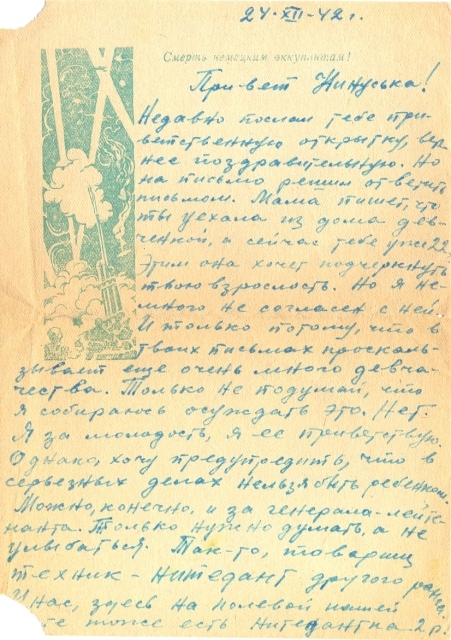 24-XII-42г.
Смерть немецким оккупантам!
Привет Нинуська!
Недавно послал тебе при-
ветственную открытку, вер
нее поздравительную. Но
на письмо решил ответить
письмом. Мама пишет, что
ты уехала из дома дев-
ченкой, а сейчас тебе уже 22.
Этим она хочет подчеркнуть
твою взрослость. Но я не-
много не согласен с ней.
И только потому, что в
твоих письмах проскаль-
зывает еще очень много девча-
чества. Только не подумай, что
я собираюсь осуждать это. Нет.
Я за молодость, я ее приветствую.
Однако, хочу предупредить, что в
серьезных делах нельзя быть ребенком.
Можно, конечно, и за генерала-лейте-
нанта. Только нужно думать, а не
улыбаться. Так-то, товарищ
техник-интедант другого ранга.
У нас, здесь на полевой нашей
те тоже есть интедантка 2 р.